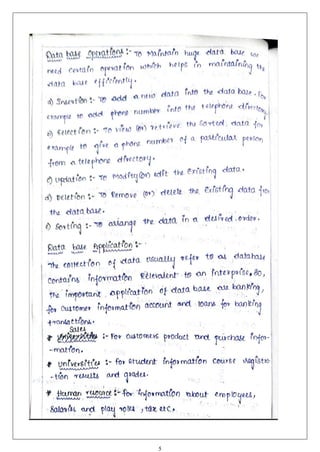 Data base operations :- To Maintain huge data base we
need certain operation which helps in maintaining the
data base efficiently.
a) Insertion :- To add a new data into the data base. for
example to add phone number into the telephone directory
b) selection :- To view (or) retrieve the stored data for
example to give a phone number of a particular person
from a telephone directory.
c) updation :- To modify (or) edit the Existing data.
d) Deletion :- To Remove (or) delete the Existing data from
the data base.
e) sorting :- To arrange the data in a desired order.
Data base Application :-
The collection of data usually refer to as database
contains information Relevalent to an interprise, So,
the important application of data base are banking,
for customer information account and loans for banking
transactions.
Sales
* :- For customers product and purchase infor-
-mation.
* Universities :- For student information course registra
-tion results and grades.
* Human resource :- for information about employees,
salaries and play roles, tax etc.
5